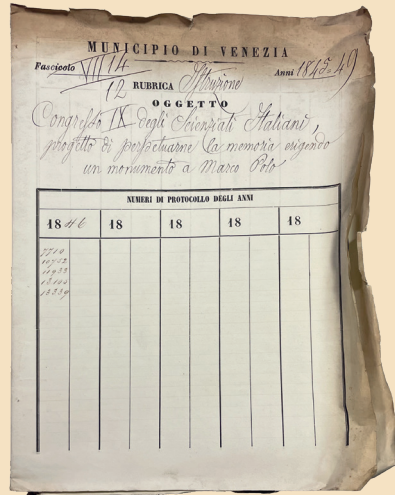 MUNICIPIO DI VENEZIA
Fascicolo VII 14 Anni 1845-49
12 RUBRICA Istruzione
OGGETTO
Congresso IX degli Scienziati Italiani,
progetto di perpetuarne la memoria erigendo
un monumento a Marco Polo
NUMERI DI PROTOCOLLO DEGLI ANNI
1846 18 18 18 18
7710
10752
11933
13339